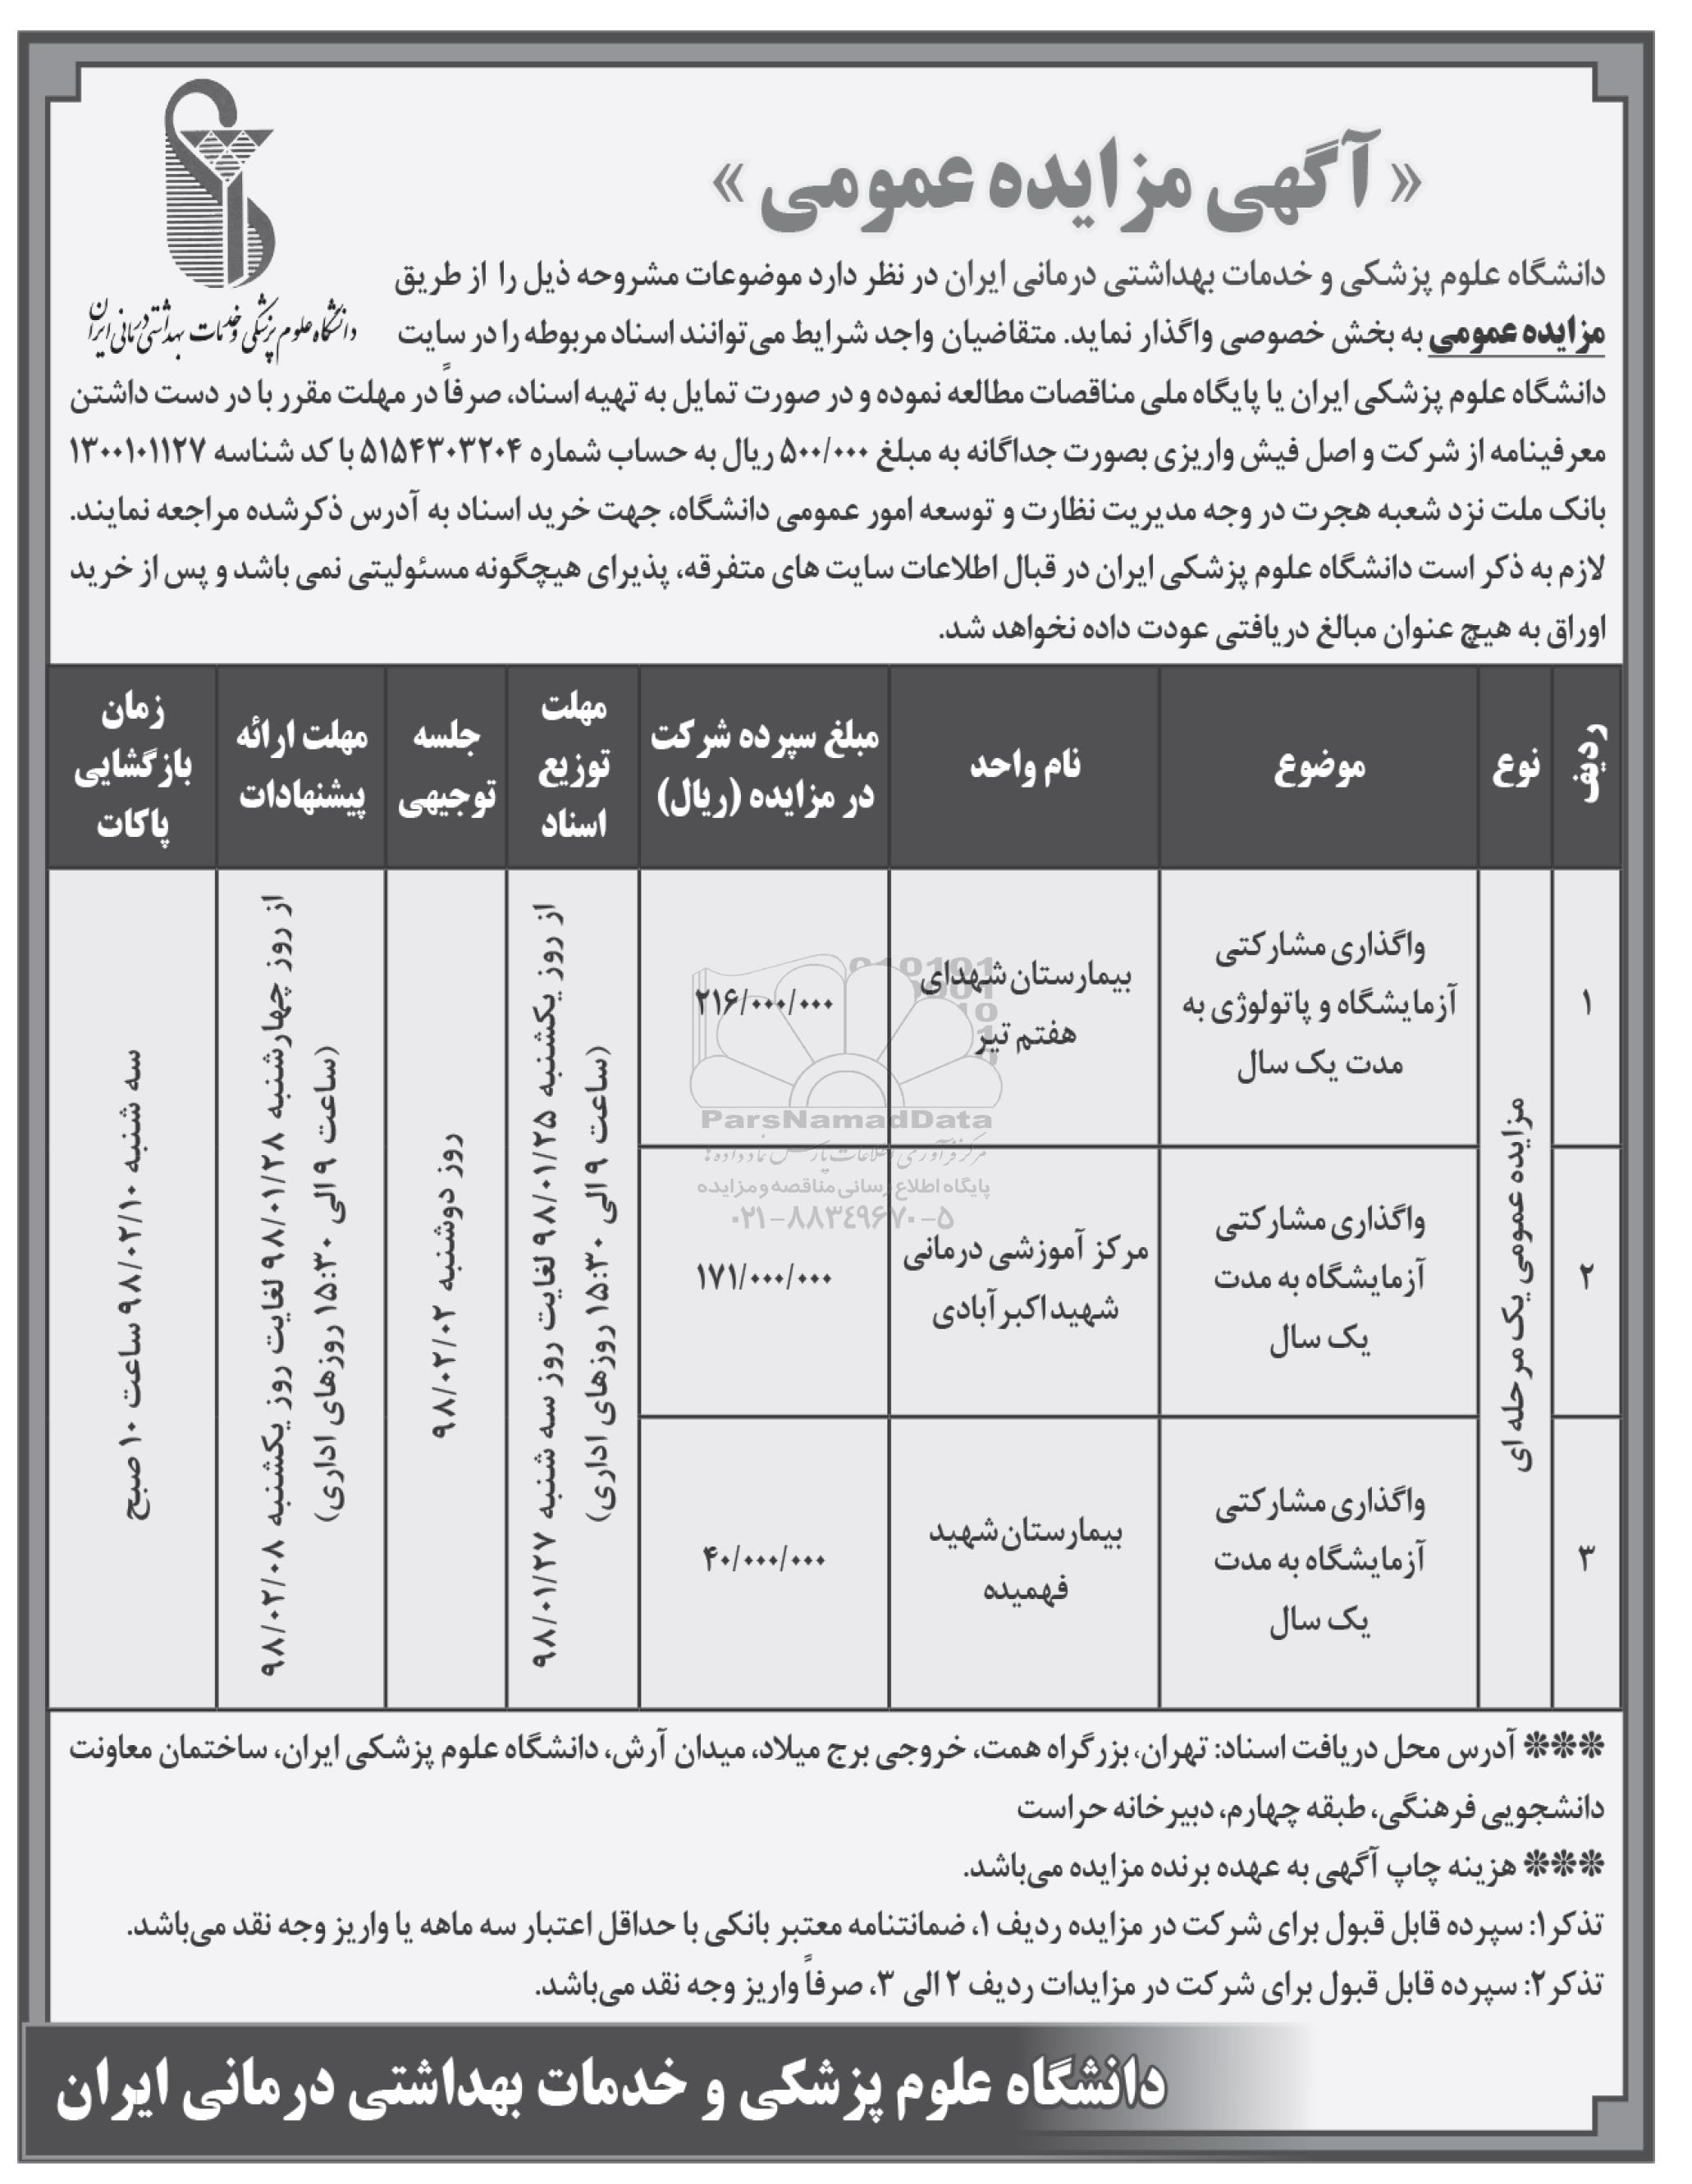 « آگهی مزایده عمومی »
دانشگاه علوم پزشکی و خدمات بهداشتی درمانی ایران
دانشگاه علوم پزشکی و خدمات بهداشتی درمانی ایران در نظر دارد موضوعات مشروحه ذیل را از طریق
مزایده عمومی به بخش خصوصی واگذار نماید. متقاضیان واجد شرایط می‌توانند اسناد مربوطه را در سایت
دانشگاه علوم پزشکی ایران یا پایگاه ملی مناقصات مطالعه نموده و در صورت تمایل به تهیه اسناد، صرفاً در مهلت مقرر با در دست داشتن
معرفینامه از شرکت و اصل فیش واریزی بصورت جداگانه به مبلغ ۵۰۰/۰۰۰ ریال به حساب شماره ۵۱۵۴۳۰۳۲۰۴ با کد شناسه ۱۳۰۰۱۰۱۱۲۷
بانک ملت نزد شعبه هجرت در وجه مدیریت نظارت و توسعه امور عمومی دانشگاه، جهت خرید اسناد به آدرس ذکرشده مراجعه نمایند.
لازم به ذکر است دانشگاه علوم پزشکی ایران در قبال اطلاعات سایت های متفرقه، پذیرای هیچگونه مسئولیتی نمی باشد و پس از خرید
اوراق به هیچ عنوان مبالغ دریافتی عودت داده نخواهد شد.
ردیف
نوع
موضوع
نام واحد
مبلغ سپرده شرکت
در مزایده (ریال)
مهلت
توزیع
اسناد
جلسه
توجیهی
مهلت ارائه
پیشنهادات
زمان
بازگشایی
پاکات
۱
مزایده عمومی یک مرحله ای
واگذاری مشارکتی
آزمایشگاه و پاتولوژی به
مدت یک سال
بیمارستان شهدای
هفتم تیر
۲۱۶/۰۰۰/۰۰۰
از روز یکشنبه ۹۸/۰۱/۲۵ لغایت روز سه شنبه ۹۸/۰۱/۲۷
(ساعت ۹ الی ۱۵:۳۰ روزهای اداری)
روز دوشنبه ۹۸/۰۲/۰۲
از روز چهارشنبه ۹۸/۰۱/۲۸ لغایت روز یکشنبه ۹۸/۰۲/۰۸
(ساعت ۹ الی ۱۵:۳۰ روزهای اداری)
سه شنبه ۹۸/۰۲/۱۰ ساعت ۱۰ صبح
۲
واگذاری مشارکتی
آزمایشگاه به مدت
یک سال
مرکز آموزشی درمانی
شهید اکبرآبادی
۱۷۱/۰۰۰/۰۰۰
۳
واگذاری مشارکتی
آزمایشگاه به مدت
یک سال
بیمارستان شهید
فهمیده
۴۰/۰۰۰/۰۰۰
ParsNamadData
مرکز فرآوری اطلاعات پارس نماد داده ها
پایگاه اطلاع رسانی مناقصه و مزایده
۰۲۱-۸۸۳۴۹۶۷۰-۵
*** آدرس محل دریافت اسناد: تهران، بزرگراه همت، خروجی برج میلاد، میدان آرش، دانشگاه علوم پزشکی ایران، ساختمان معاونت
دانشجویی فرهنگی، طبقه چهارم، دبیرخانه حراست
*** هزینه چاپ آگهی به عهده برنده مزایده می‌باشد.
تذکر۱: سپرده قابل قبول برای شرکت در مزایده ردیف ۱، ضمانتنامه معتبر بانکی با حداقل اعتبار سه ماهه یا واریز وجه نقد می‌باشد.
تذکر۲: سپرده قابل قبول برای شرکت در مزایدات ردیف ۲ الی ۳، صرفاً واریز وجه نقد می‌باشد.
دانشگاه علوم پزشکی و خدمات بهداشتی درمانی ایران